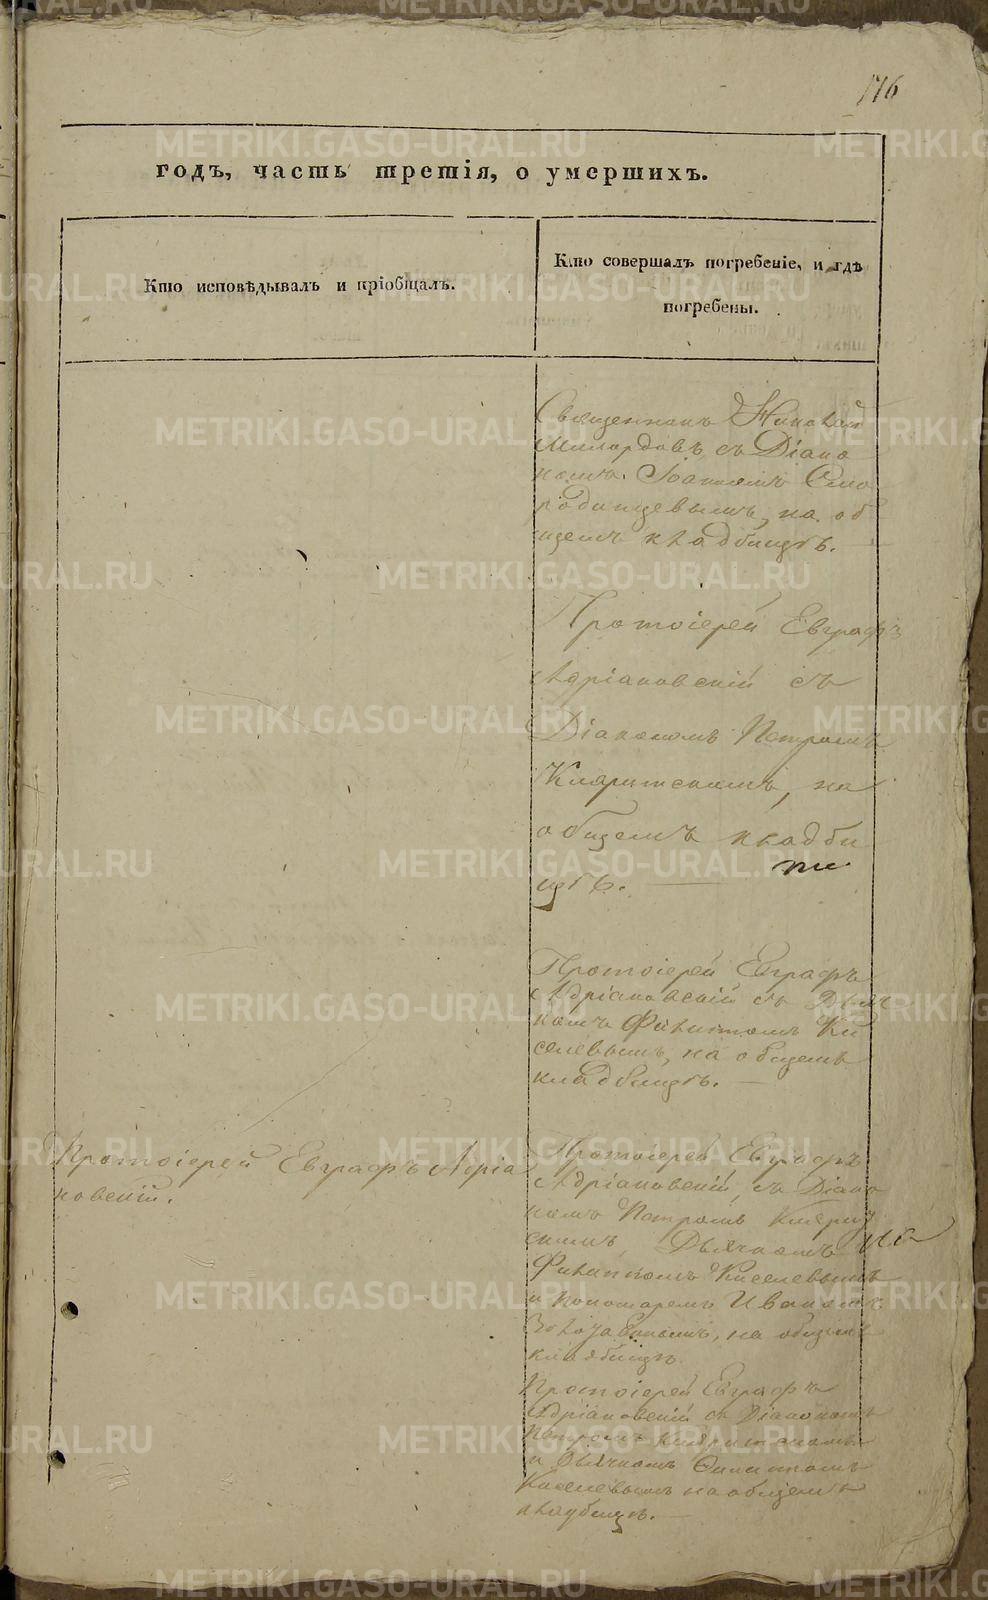 176
годъ, часть третія, о умершихъ.
Кто исповѣдывалъ и пріобщалъ.
Кто совершалъ погребеніе, и гдѣ
погребены.
Священникъ Николай
Милордовъ съ Діако
номъ Іоанномъ Смо
родинцевымъ, на об
щемъ кладбищѣ.
Протоіерей Евграфъ
Адріановскій съ
Діакономъ Петромъ
на
общемъ кладби
щѣ.
Протоіерей Евграфъ
Адріановскій съ Дьяч
комъ Филиппомъ Ки
селевымъ, на общемъ
кладбищѣ.
Протоіерей Евграфъ Адріа
новскій.
Протоіерей Евграфъ
Адріановскій, съ Діако
номъ Петромъ
Дьячкомъ
Филиппомъ Киселевымъ
и Пономаремъ Иваномъ
на общемъ
кладбищѣ
Протоіерей Евграфъ
Адріановскій съ Діакономъ
Петромъ
и Дьячкомъ Филиппомъ
Киселевымъ на общемъ
кладбищѣ.
METRIKI.GASO-URAL.RU